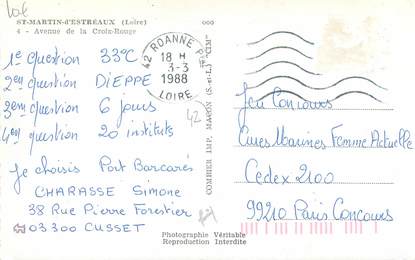 10€
ST-MARTIN-d'ESTRÉAUX (Loire)
4 - Avenue de la Croix-Rouge
000
42 ROANNE Pal
18 H
3-3
1988
LOIRE
1e question 33°C
2em question DIEPPE
3em question 6 jours
4em question 20 instituts
Je choisis Port Barcarés
CHARASSE Simone
38 Rue Pierre Forestier
03300 CUSSET
42
COMBIER IMP. MACON (S.-et-L.) "CIM"
Photographie Véritable
Reproduction Interdite
Jeu Concours
Cures Marines Femme Actuelle
Cedex 2100
99210 Paris Concours